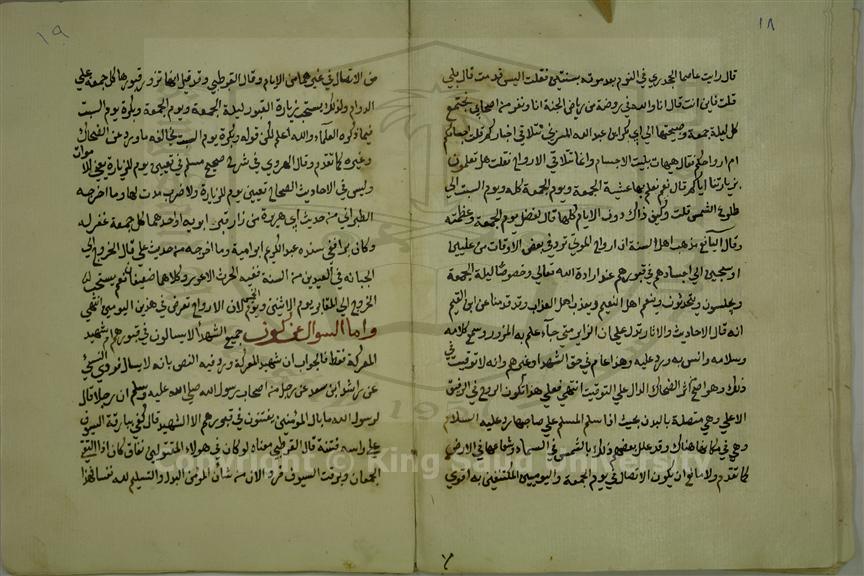 ١٨
قال رايت عاصما الجحدري في النوم بعد موته بسنتين فقلت اليس قد مت قال بلي
قلت فاين انت قال انا والله في روضة من رياض الجنة انا ونفر من اصحابي نجتمع
كل ليلة جمعة وصبيحتها الي ابي بكر ابن عبد الله المزني فنتلاقي اخباركم قلت اجسامكم
ام ارواحكم فقال هيهات بليت الاجسام وانما تتلاقي الارواح فقلت هل تعلمون
بزيارتنا اياكم قال نعم نعلم بها عشية الجمعة ويوم الجمعة كله ويوم السبت الي
طلوع الشمس قلت وكيف ذلك دون الايام كلها قال لفضل يوم الجمعة وعظمته
وقال اليافعي مذهب اهل السنة ان ارواح الموتي ترد في بعض الاوقات من عليين
او سجين الي اجسادهم في قبورهم عند ارادة الله تعالي وخصوصا ليلة الجمعة
ويجلسون ويتحدثون وينعم اهل النعيم ويعذب اهل العذاب وقد قدمنا عن ابن القيم
انه قال الاحاديث والاثار تدل علي ان الزاير متي جاء علم به المزور وسمع كلامه
وسلامه وانس به ورد عليه وهذا عام في حق الشهدا وغيرهم وانه لا توقيت في
ذلك وهو اصح من اثر الضحاك الدال علي التوقيت انتهي فعلي هذا تكون الروح في الرفيق
الاعلي وهي متصلة بالبدن بحيث اذا سلم المسلم علي صاحبها رد عليه السلام
وهي في مكانها هناك وقد مثل بعضهم ذلك بالشمس في السماء وشعاعها في الارض
كما تقدم ولا مانع ان يكون الاتصال في يوم الجمعة واليومين المكتنفين به اقوي
١٩
من الاتصال في غيرها من الايام وقال القرطبي وقد قيل انها تزور قبورها كل جمعة علي
الدوام ولذلك يستحب زيارة القبور ليلة الجمعة ويوم الجمعة وبكرة يوم السبت
فيما ذكره العلماء والله اعلم لكن قوله وبكرة يوم السبت يخالفه ما ورد عن الضحاك
وغيره كما تقدم وقال الهروي في شرح صحيح مسلم في تعيين يوم للزيارة يعني الاموات
وليس في الاحاديث الصحاح تعيين يوم للزيارة ولا ضرب مدت لها وما اخرجه
الطبراني من حديث ابي هريرة من زار قبر ابويه او احدهما كل جمعة غفر له
وكان برا ففي سنده عبد الكريم ابو امية وما اخرجه من حديث علي قال الخروج الي
الجبانه في العيدين من السنة ففيه الحرث الاعور وكلاهما ضعيفان نعم يستحب
الخروج الي المقابر يوم الاثنين ويوم الخميس لان الارواح تعرض في هذين اليومين انتهي
واما السوال عن كون جميع الشهدا لا يسالون في قبورهم ام شهيد
المعركة فقط فالجواب ان شهيد المعركة ورد فيه النص بانه لا يسال فروي النسئي
عن راشد ابن سعد عن رجل من اصحاب رسول الله صلي الله عليه وسلم ان رجلا قال
لرسول الله ما بال المومنين يفتنون في قبورهم الا الشهيد قال كفي ببارقة السيوف
علي راسه فتنة قال القرطبي معناه لو كان في هولاء المقتولين نفاق كان اذا التقي
الجمعان وبرقت السيوف فر لان من شان المومن البذل والتسليم لله نفسا فهذا
Copyright © King Saud University